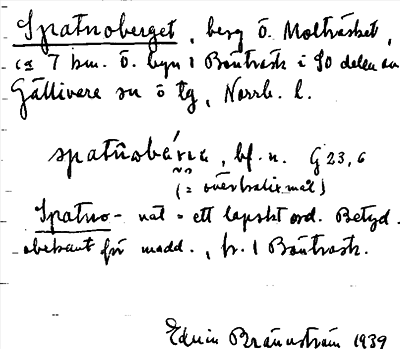 Spatnoberget, berg ö. Molträsket,
ca 7 km. ö. byn i Bönträsk i SO delen av
Gällivare sn o tg, Norrb. l.
bf. n. G 23,6
(= överkalixmål)
Spatno- nåt = ett lapskt ord. Betyd.
obekant för medd., fr. i Bönträsk.
Edvin Brännström 1939